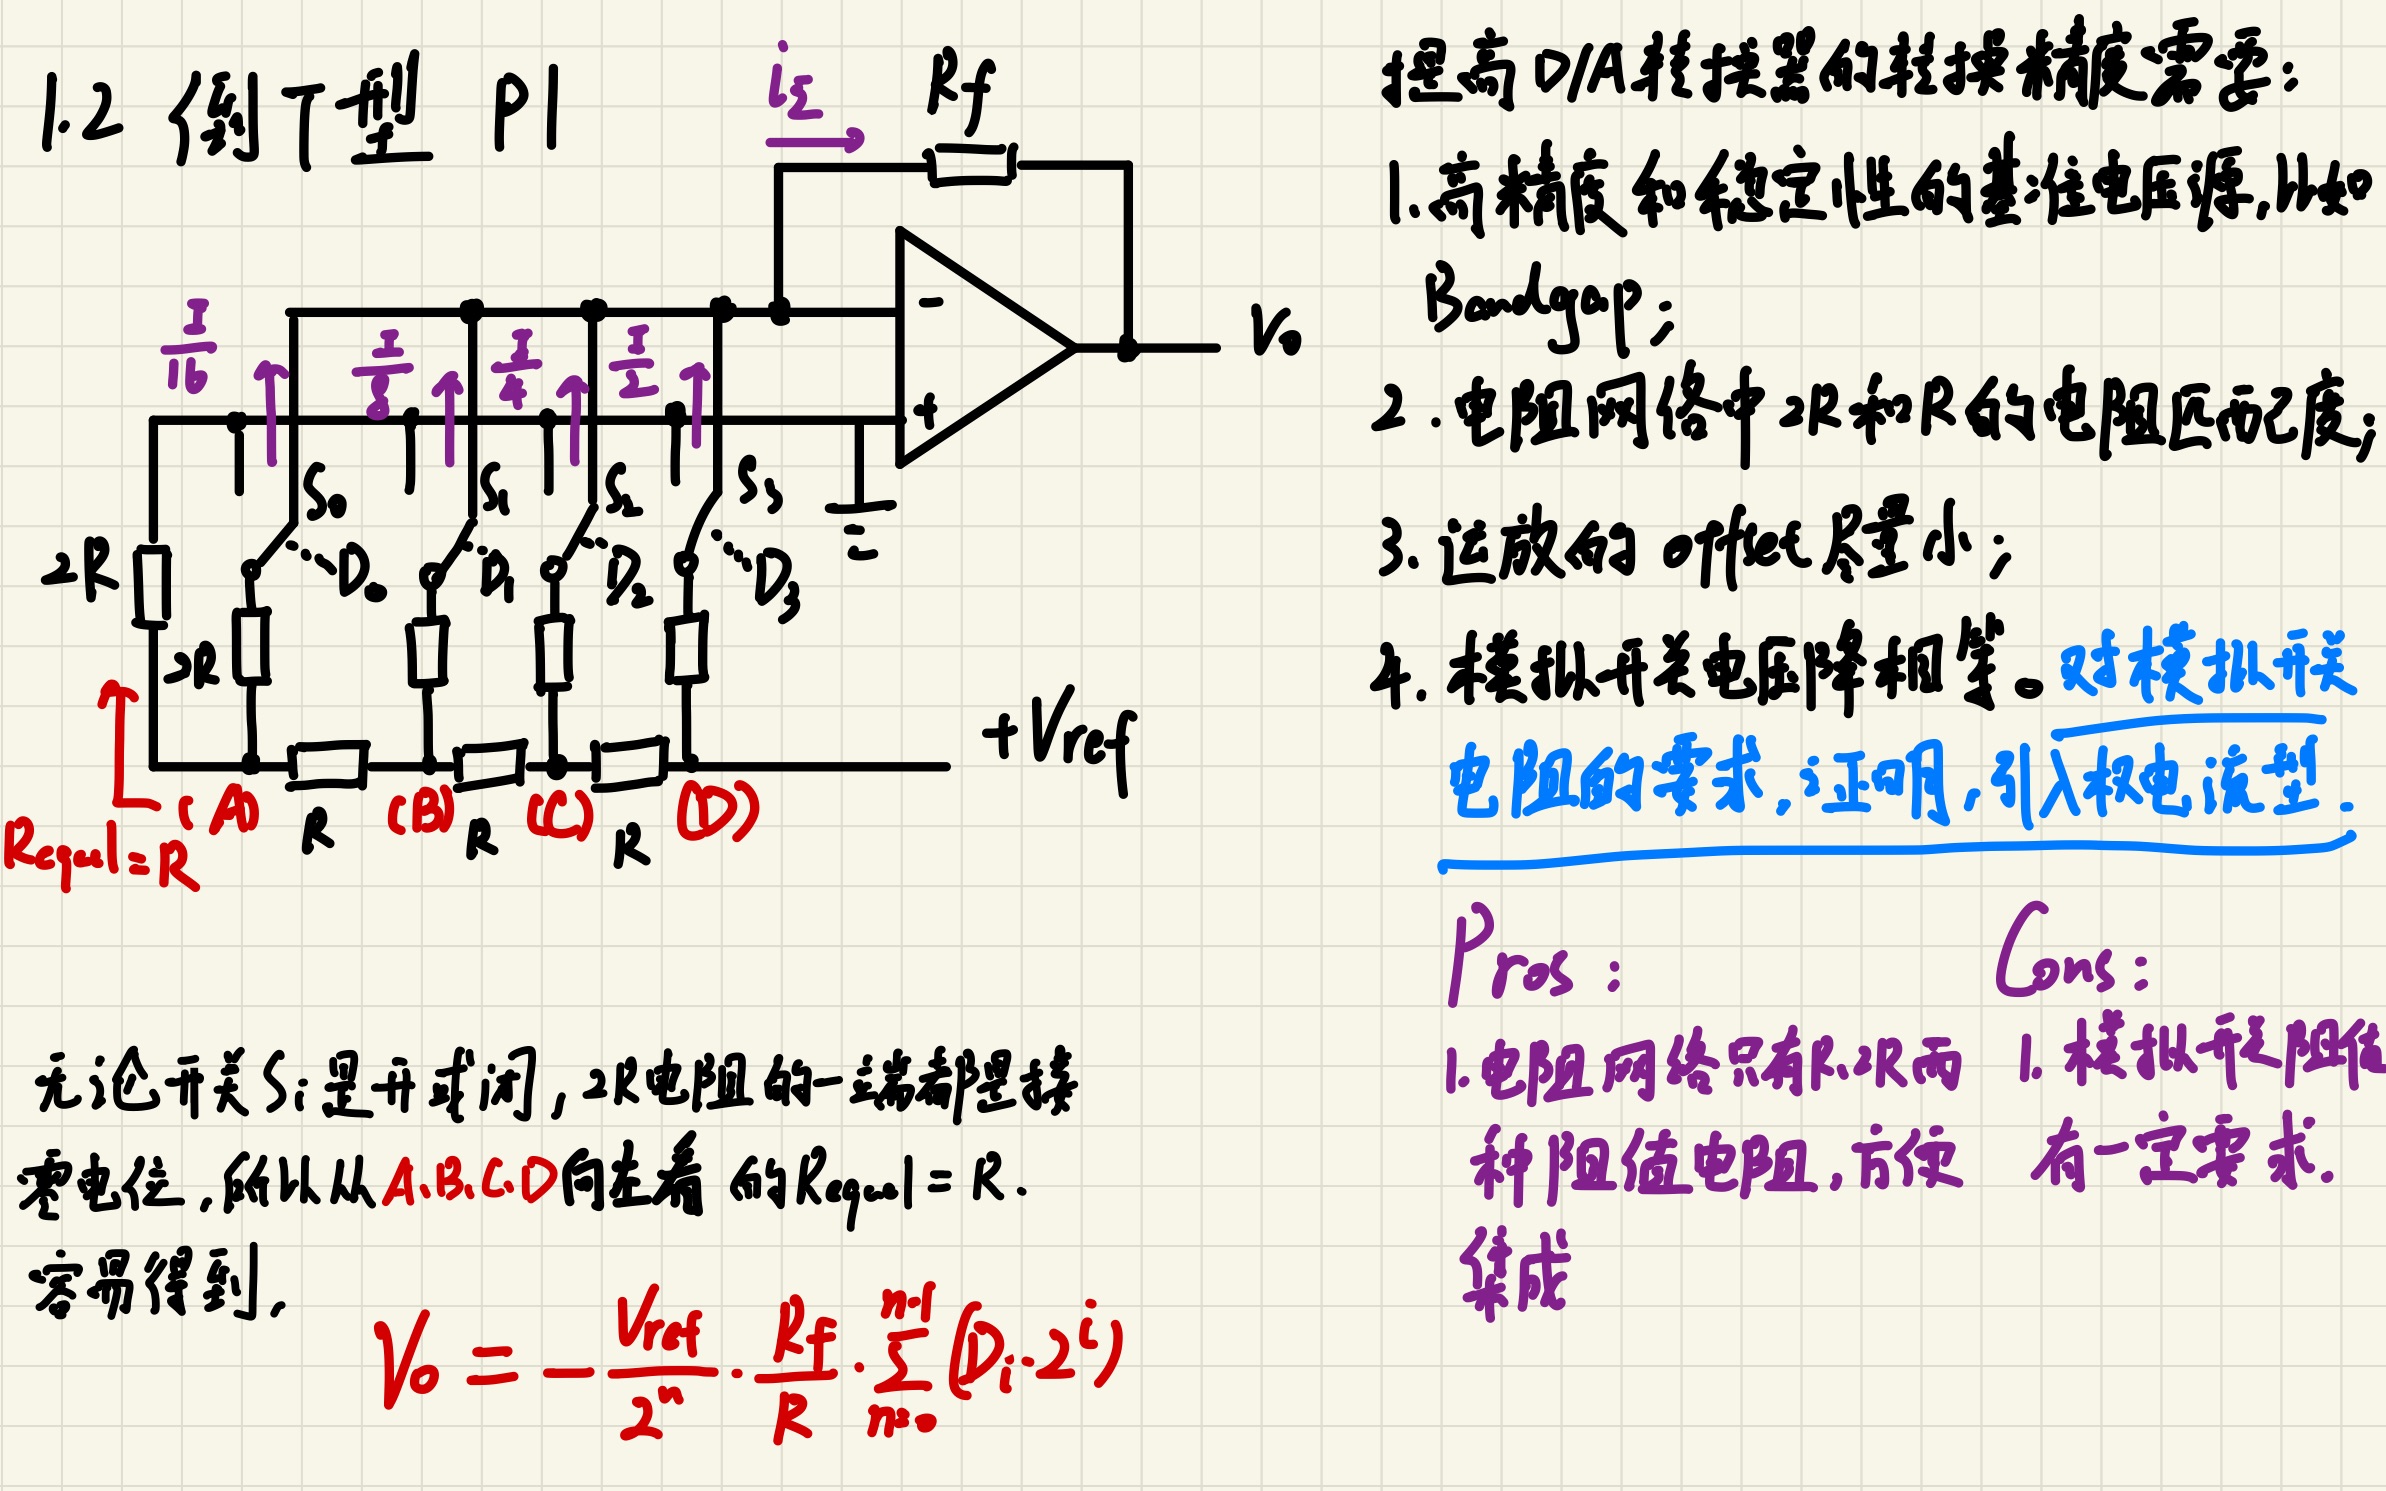 1.2 倒T型 P1
iΣ
Rf
I/16
I/8
I/4
I/2
-
+
Vo
S0
S1
S2
S3
D0
D1
D2
D3
2R
2R
+Vref
(A)
(B)
(C)
(D)
R
R
R
Requal=R
无论开关Si是开或闭,2R电阻的一端都是接
零电位,所以从A.B.C.D向左看的Requal=R.
容易得到,
Vo = - Vref/2^n · Rf/R · Σ(n=0, n-1) (Di·2^i)
提高D/A转换器的转换精度需要:
1.高精度和稳定性的基准电压源,比如
Bandgap;
2.电阻网络中2R和R的电阻匹配度;
3.运放的offset尽量小;
4.模拟开关电压降相等。对模拟开关
电阻的要求,证明,引入权电流型.
Pros:
1.电阻网络只有R、2R两
种阻值电阻,方便
集成
Cons:
1.模拟开关阻值
有一定要求.